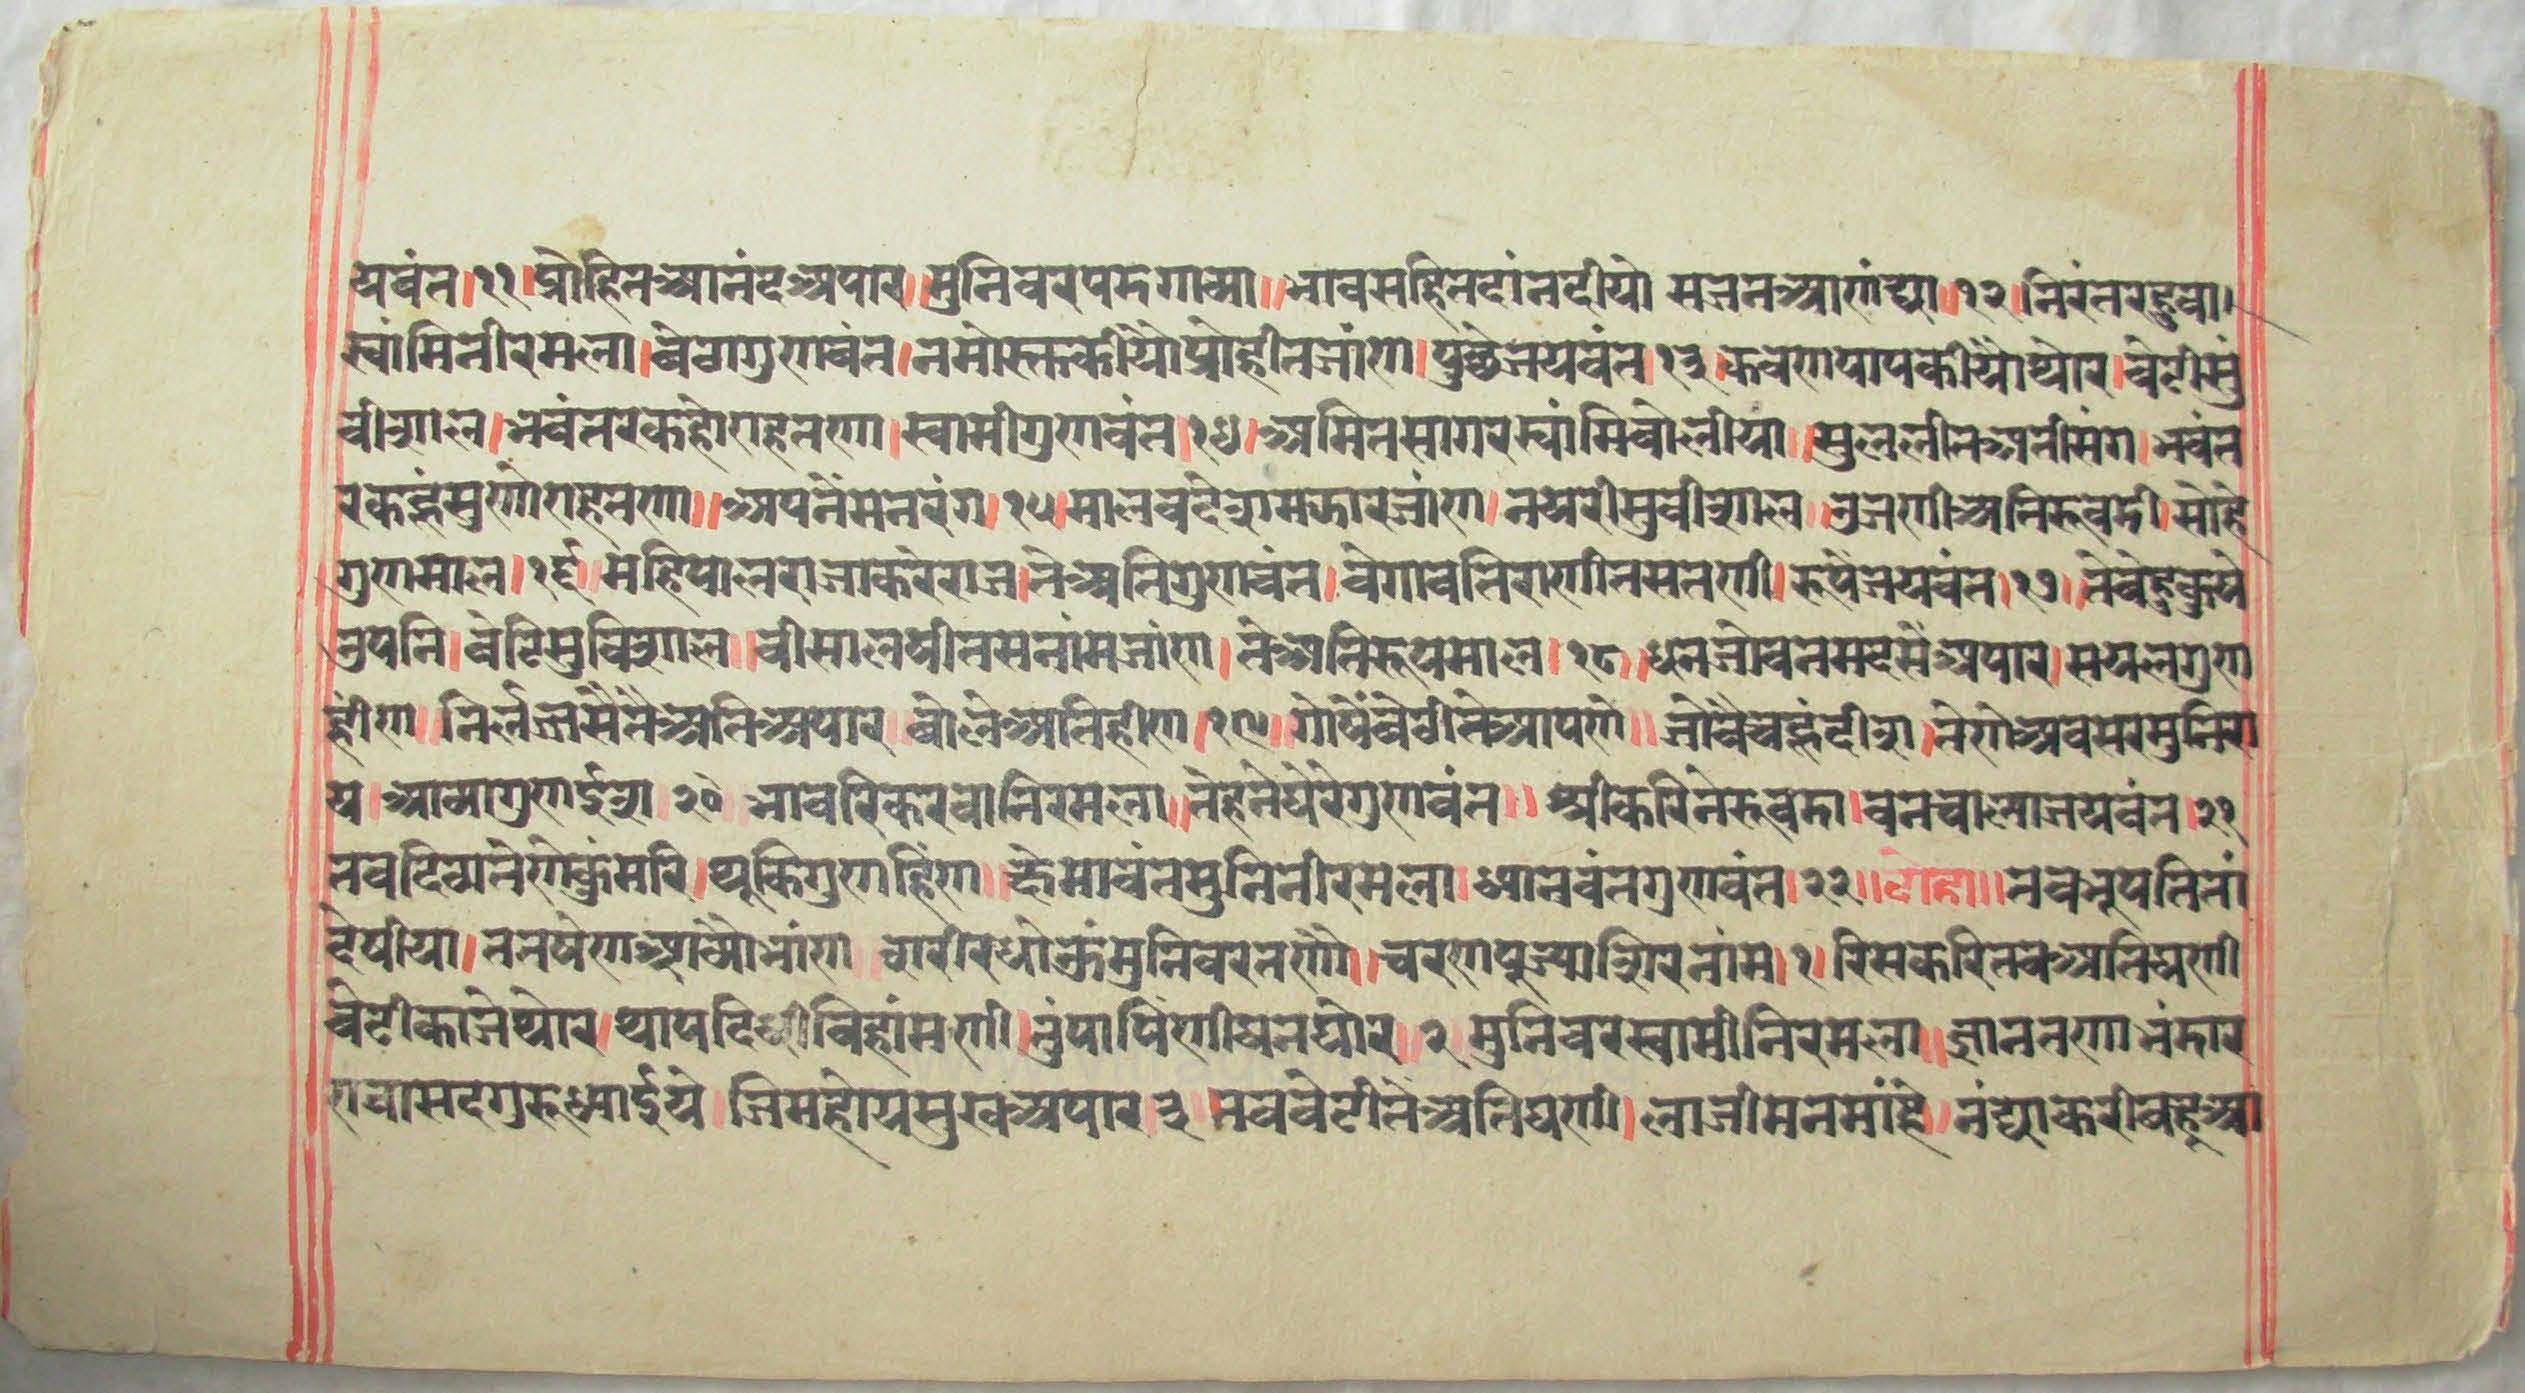 यवंत।११।प्रोहितआनंदअपार॥मुनिवरपदगाया॥भावसहितदांनदीयो मजनआणंद्या॥१२॥निरंतरहुवा।
स्वांमिनीरमला।बेठागुणवंत।नमोस्तुकीयोप्रोहीतजांण।पुछेजयवंत।१३।कवणपापकीयोघोर।बेटीसुं
वीशाल।भवंतरकहोराहतणा।स्वामीगुणवंत।१४।अमितसागरस्वांमिबोलीया॥सुललीतअतीसंग।भवंत
रकहुंसुणोराहतणा॥अपनैमनरंग।१५।मालवदेशमझारजांण।नयरीसुवीशाल॥उजेणीअतिरुवडी।सोहे
गुणमाल।१६॥महिपालराजाकरेराज।तेअतिगुणवंत।वेगावतिराणीतसतणी।रुपेंजयवंत।१७।तेबेहुकुषे
उपनि।बेटिसुविशाल॥वीसालषीतसनांमजांण।तेअतिरूपमाल।१८॥धनजोवनमदसेंअपार।सयलगुण
हीण॥निर्लजसेंतेंअतिअपार॥बोलेअतिहीण।१९॥गोषेंबेठीतेआपणे॥जोवेचहुंदीश।तेणेअवसरमुनिरा
य॥आयागुणईश॥२०॥भावरिकरवानिरमला॥तेहनेघेरेगुणवंत॥श्रीकरिनेरुवडा।वनचाल्याजयवंत।२१
तवदिठातेणेकुंमरि।थूकिगुणहिंण॥क्षेमावंतमुनिनीरमला।ध्यानवंतगुणवंत।२२॥दोहा॥तवनृपतिनां
देषीया।ततषेणआव्योनांण॥शरीरधोऊंमुनिवरतणो॥चरणपूज्याशिरनांम।१।रिसकरितवअतिघणी
बेटीकाजेघोर।थापदिधीविहांमणी।तुंपापिंणीघनघोर॥२॥मुनिवरस्वामीनिरमला॥ज्ञानतणाभंडार
एवासदगुरुध्याईये॥जिमहोयसुखअपार॥३॥तवबेटीतेअतिघणी।लाजीमनमांहे॥नंद्याकरीबहूआ